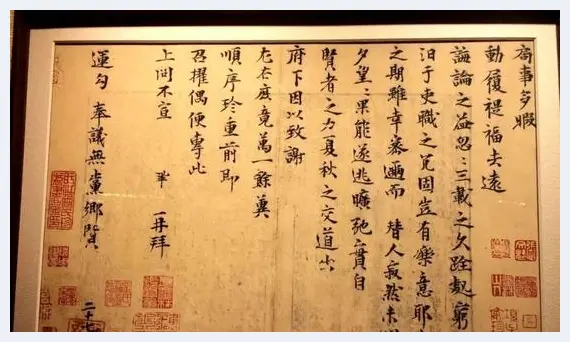 局事多暇
動履禔福去遠
誨論之益忽〻三載之久跧處窮
汩于吏職之冗固豈有樂意耶
之期雖幸密邇而替人寂然未
夕望〻果能遂逃曠弛之責自
賢者之力夏秋之交道出
府下因以致謝
左右庶竟萬一餘冀
順序珍重前即
召擢偶便專此
上問不宣 鞏 再拜
運勾奉議無黨鄉賢
二十七